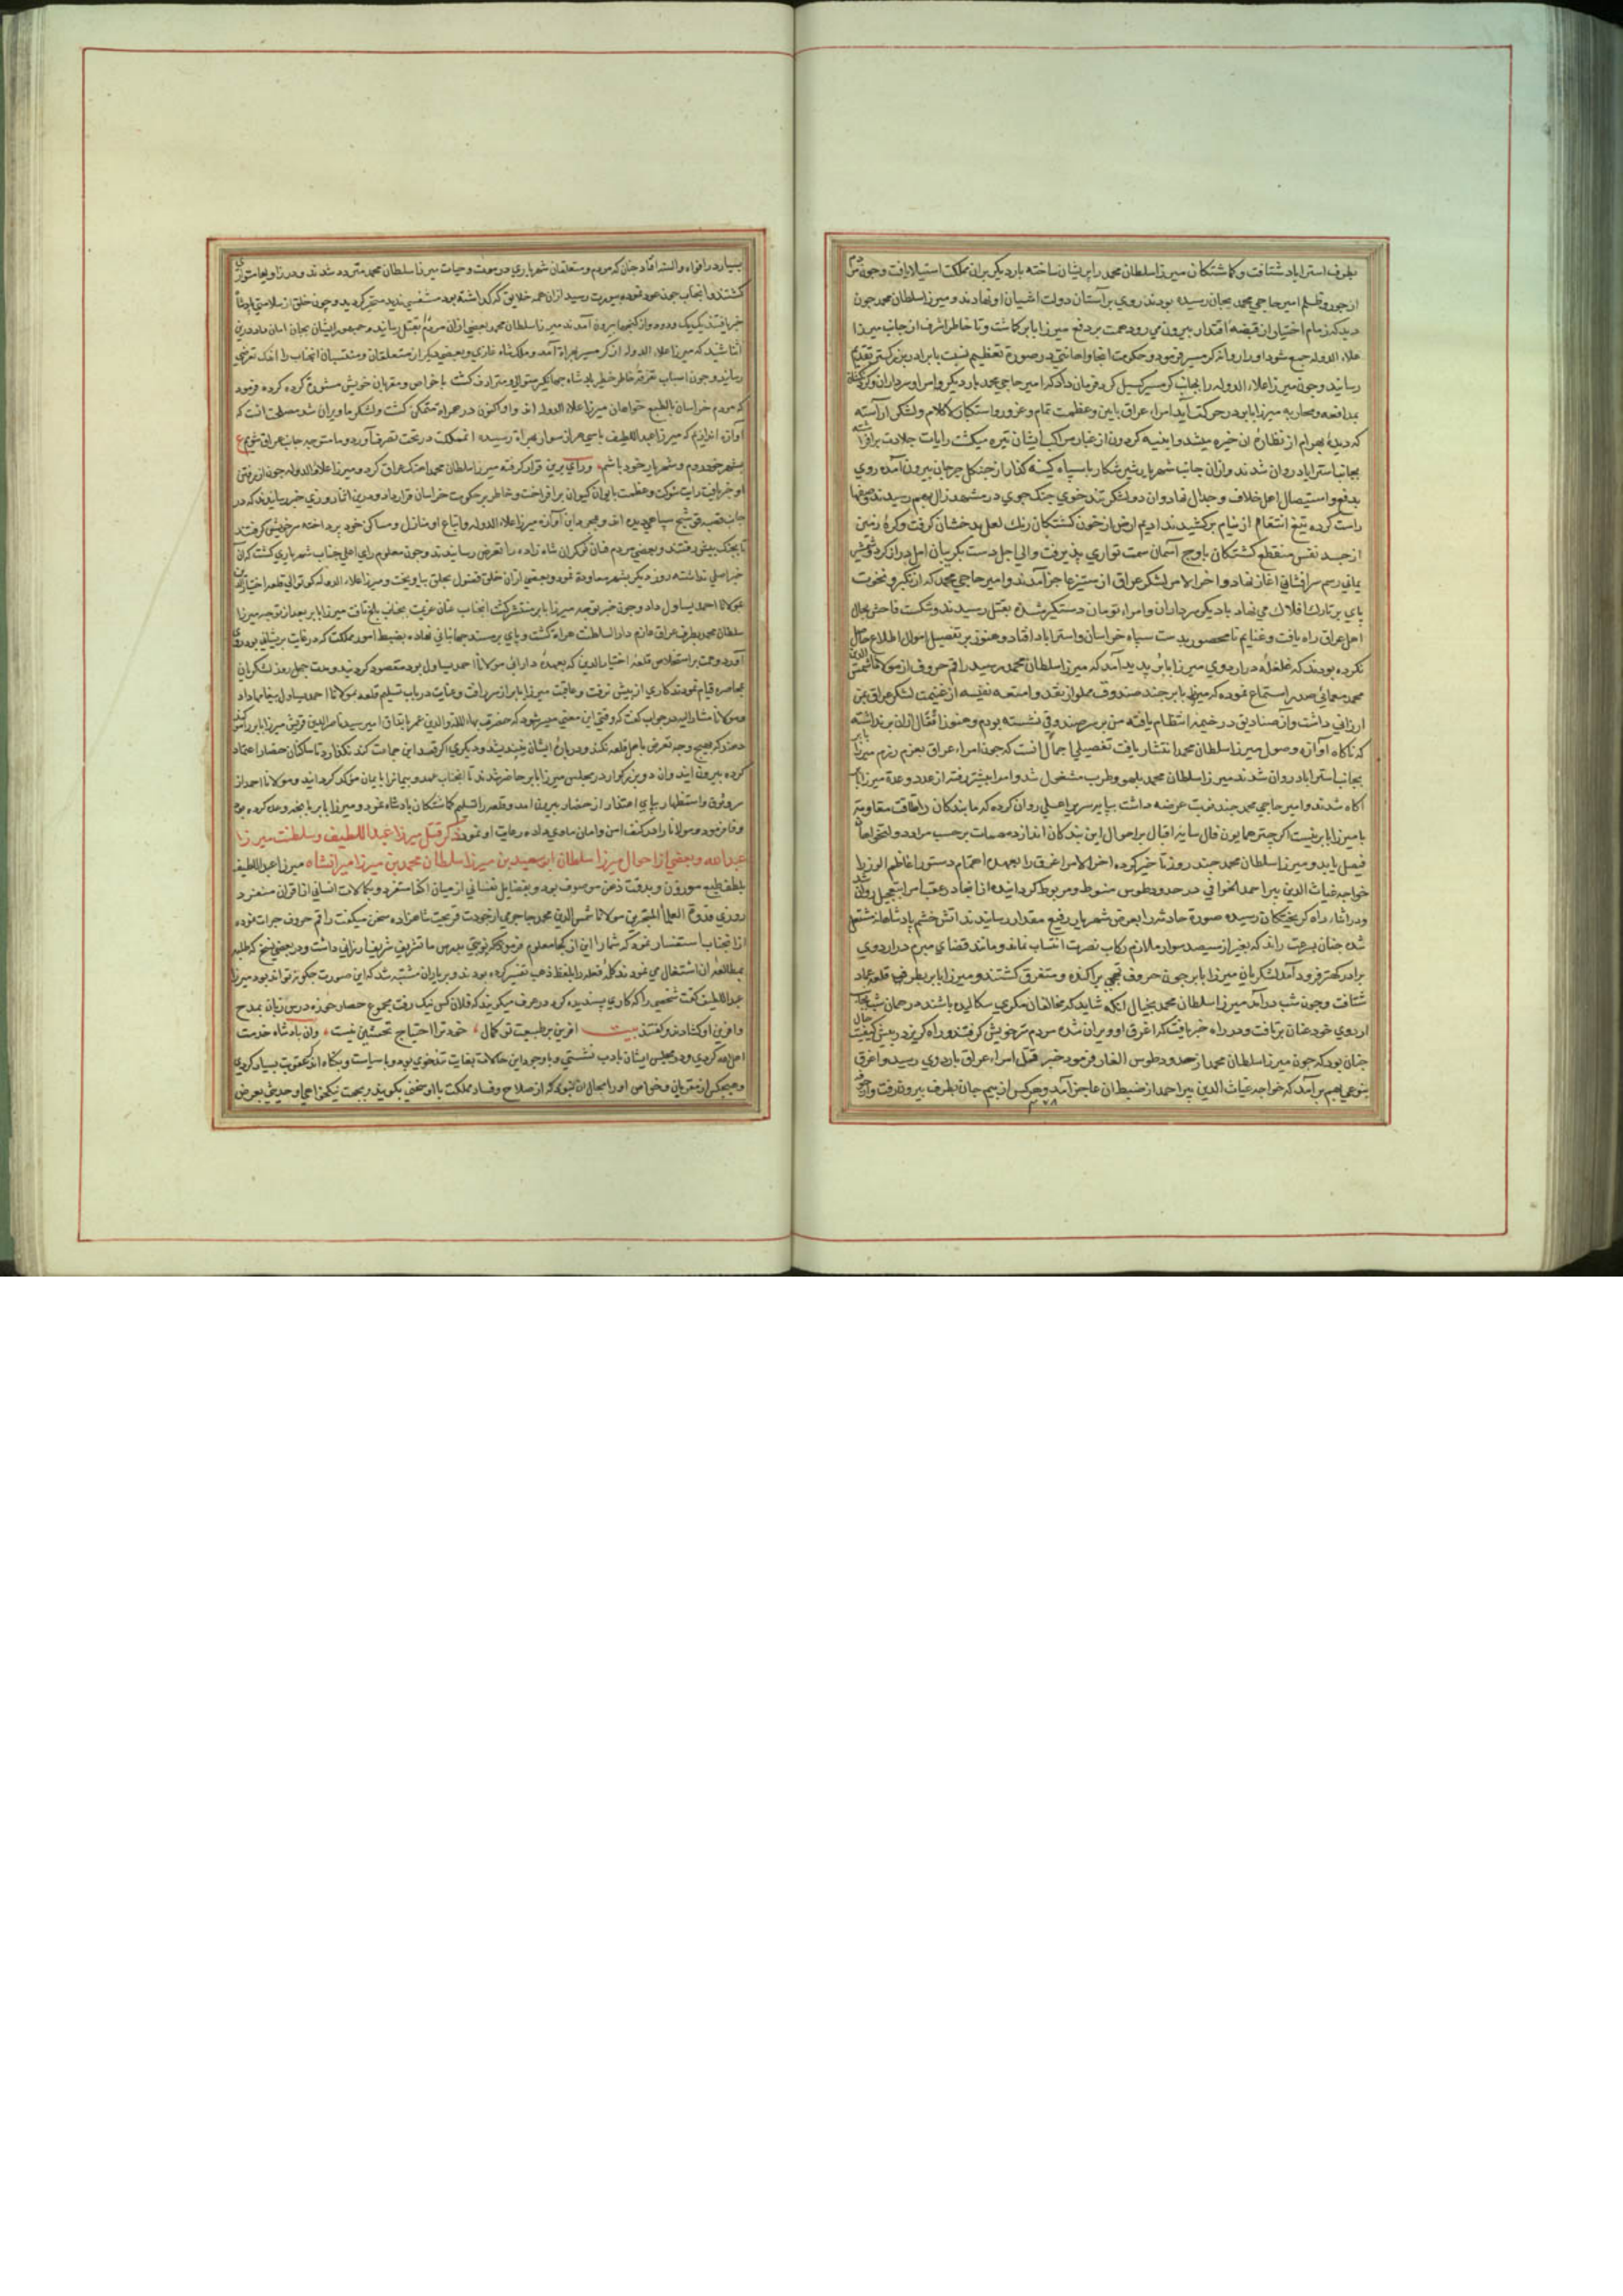 بطرف استراباد شتافت و کماشتکان میرزا سلطان محمد را پریشان ساخته بار دیکر بران مملکت استیلا یافت و چون مردم
از جور و ظلم امیر حاجی محمد بجان رسیده بودند روی بر آستان دولت اشیان او نهادند و میرزا سلطان محمد چون
دید که زمام اختیار از قبضه اقتدار بیرون می رود همت بر دفع میرزا بابر کماشت و تا خاطر اشرف از جانب میرزا
علاء الدوله جمع شود او را روانه کرمسیر فرمود و حکومت انجا
رسانید و چون میرزا علاء الدوله را بجانب کرمسیر کسیل کرد فرمان داد که امیر حاجی محمد بار دیکر
بمدافعه و محاربه میرزا بابر در حرکت آید امراء عراق باین و عظمت تمام و غرور و استکبار لا کلام و لشکری آراسته
که دیده بهرام از نظاره آن خیره میشد و اینیه کردون از غبار مراکب ایشان تیره میکشت رایات جلادت برافراشته
بجانب استراباد روان شدند و ازان جانب شهریار شیر شکار با سپاه کینه کذار از جنکل جرجان بیرون آمده روی
بدفع و استیصال اهل خلاف و جدال نهاد و ان دو لشکر تند خوی جنک جوی در بهم رسیدند صفها
راست کرده تیغ انتقام از نیام برکشیدند ادیم ارض از خون کشتکان رنک لعل بدخشان کرفت و کره زمین
از جسد نفس منقطع کشتکان باوج آسمان سمت تواری پذیرفت والی اجل دست بکریبان امل دراز کرد
یمانی رسم سرافشانی اغاز نهاد و اخر الامر لشکر عراق از ستیز عاجز آمدند و امیر حاجی محمد که از تکبر و نخوت
پای بر تارک افلاک می نهاد با دیکر سرداران و امراء تومان دستکیر شده بقتل رسیدند و شکست فاحش بحال
اهل عراق راه یافت و غنایم نامحصور بدست سپاه خراسان و استراباد افتاد و هنوز بر تفصیل اموال اطلاع حاصل
نکرده بودند که غلغله در اردوی میرزا بابر پدید آمد که میرزا سلطان محمد رسید راقم حروف از مولانا شمس الدین
محمد معمائی استماع نموده که میرزا بابر چند صندوق مملو از نقد و امتعه نفیسه از غنیمت لشکر عراق بمن
ارزانی داشت و ان صنادیق در خیمه انتظام یافته من بر سر صندوقی نشسته بودم و هنوز اثقال ازان برنداشته
که ناکاه آوازه وصول میرزا سلطان محمد انتشار یافت تفصیل این اجمال انست که چون امراء عراق بعزم رزم میرزا بابر
بجانب استراباد روان شدند میرزا سلطان محمد بلهو و طرب مشغول شد و امرا پیشتر رفته از عدد و عده میرزا بابر
آکاه شدند و امیر حاجی محمد چند نوبت عرضه داشت بپایه سریر اعلی روان کرده که ما بندکان را طاقت مقاومت
با میرزا بابر نیست اکر چتر همایون فال سایه اقبال بر احوال این بندکان اندازد مهمات بر حسب مراد
فیصل یابد و میرزا سلطان محمد چند روز تاخیر کرده اخر الامر اغرق را بعهده اهتمام دستور اعاظم الوزرا
خواجه غیاث الدین پیر احمد الخوافی در حدود طوس منوط و مربوط کردانیده از انجا در عقب امرا بتعجیل روان شد
و در اثناء راه کریختکان رسیده صورة حادثه را بعرض شهریار رفیع مقدار رسانیدند اتش خشم پادشاهانه مشتعل
شده چنان بسرعت راند که بغیر از سیصد سوار ملازم رکاب نصرت انتساب نماند و مانند قضای مبرم در اردوی
برادر کهتر فرود آمد لشکریان میرزا بابر چون حروف تهجی پراکنده و متفرق کشتند و میرزا بابر بطرف قلعه عماد
شتافت و چون شب درآمد میرزا سلطان محمد بخیال آنکه شاید که مخالفان مکری سکالیده باشند در همان شب
اردوی خود عنان برتافت و در راه خبر یافت که اغرق او ویران شده مردم سر خویش کرفتند و راه کریز در پیش
چنان بود که چون میرزا سلطان محمد از حدود طوس الغار فرمود خبر قتل امراء عراق باردوی رسید و اغرق
بنوعی بهم برآمد که خواجه غیاث الدین پیر احمد از ضبط ان عاجز آمد و هر کس از بیم جان بطرفی بیرون رفت
بسیار در افواه و السنه افتاد چنان که مردم و متعلقان شهریاری در موت و حیات میرزا سلطان محمد متردد شدند و در زوایا متواری
کشتند و انجناب
خبر یافتند یک یک و دو دو از کنجها بیرون آمدند میرزا سلطان محمد بعضی ازان مردم بقتل رسانید و جمعی را ایشان بجان امان داد و درین
اثنا شنید که میرزا علاء الدوله از کرمسیر بهراة آمد و ملک شاه غازی و بعضی دیکر از متعلقان و منتسبان انجناب را اندک تعرضی
رسانید و چون اسباب تفرقه خاطر خطیر پادشاه جهانکیر متوالی و مترادف کشت با خواص و مقربان خویش مشورة کرده فرمود
که مردم خراسان بالطبع خواهان میرزا علاء الدوله اند و او اکنون در هراه متمکن کشت و لشکر ما ویران شد مصلحت انست که
آوازه اندازیم که میرزا عبد اللطیف با سی هزار سوار بهراة رسیده انمملکت در تحت تصرف آورد و ما متوجه جانب عراق شویم ع
بشهر خود روم و شهریار خود باشم ورای برین قرار کرفته میرزا سلطان محمد اهنک عراق کرد و میرزا علاء الدوله چون از رفتن
او خبر یافت رایت شوکت و عظمت بایوان کیوان برافراخت و خاطر بر حکومت خراسان قرار داد و درین اثنا روزی خبر رسانیدند که در
جانب سپاهی دیده اند و بمجرد این آوازه میرزا علاء الدوله و اتباع او منازل و مساکن خود پرداخته سر خویش کرفتند
تعرض رسانیدند و چون معلوم رای اعلی جناب شهریاری کشت که ان
خبر اصلی نداشته روز دیکر بشهر معاودة نمود و میرزا علاء الدوله کوتوالی قلعه اختیار الدین
بمولانا احمد یساول داد و چون خبر توجه میرزا بابر منتشر کشت انجناب عنان عزیمت بجانب بلخ تافت میرزا بابر بعد از توجه میرزا
سلطان محمد بطرف عراق عازم دار السلطنت هراه کشت و پای بر مسند جهانبانی نهاده بضبط امور مملکت که در غایت پریشانی بود روی
آورد و همت بر استخلاص قلعه اختیار الدین که بعهده دارائی مولانا احمد یساول بود مقصور کردانید و مدت چهل روز لشکریان
بمحاصره قیام نمودند کاری از پیش نرفت و عاقبت میرزا بابر از سر رافت و عنایت در باب تسلیم قلعه مولانا احمد یساول پیغامها داد
و مولانا مشار الیه در جواب کفت که وقتی این معنی میسر شود که حضرت بهاء الملة والدین عمر باتفاق امیر سید ناصر الدین قریش میرزا بابر را
دهند که بهیچ وجه تعرض باهل قلعه نکند و دربارهٔ ایشان نیندیشد و دیکری اکر قصد این جماعت کند نکذارد تا ساکنان حصار اعتماد
کرده بیرون ایند وان دو بزرکوار در مجلس میرزا بابر حاضر شدند تا انجناب عهد و پیمان را بایمان موکد کردانید و مولانا احمد از
سر وثوق و استظهار بپای اعتذار از حصار بیرون آمد و قلعه را تسلیم کماشتکان پادشاه نمود و میرزا بابر بانچه وعده کرده بود
وفا فرمود و مولانا را در کنف امن و امان ماوی داده رعایت او نمود ذکر قتل میرزا عبد اللطیف و سلطنت میرزا
عبد الله و بعضی از احوال میرزا سلطان ابو سعید بن میرزا سلطان محمد بن میرزا میرانشاه میرزا عبد اللطیف
بلطف طبع موزون و بدقت ذهن موصوف بود و بفضایل نفسانی از میان اکفا مستفرد و بکمالات انسانی از اقران منفرد
روزی قدوة العلماء المتبحرین مولانا شمس الدین محمد جاجرمی از جودت قریحت شاهزاده سخن میکفت راقم حروف جرات نموده
ازانجناب استفسار نمود که شما را این از کجا معلوم فرمود که نوبتی بمدرس ما تشریف شریف ارزانی داشت و در بعضی نسخ که طلبه
بمطالعه ان اشتغال می نمودند کلمه فعله را بلفظ ذهب تفسیر کرده بودند و بر یاران مشتبه شد که این صورت چکونه تواند بود میرزا
عبد اللطیف کفت شخصی را که کاری پسندیده کرد در عرف میکویند که فلان کس نیک رفت مجموع حضار حوزه درس زبان بمدح
و آفرین او کشادند و کفتند بیت آفرین بر طبیعت تو کمال خود ترا احتیاج تحسین نیست وان پادشاه خدمت
اهل الله کردی و در مجلس ایشان بادب نشستی و با وجود این حالات بغایت تندخوی بود و با سیاست و بکناه اندک عقوبت بسیار کردی
و هیچکس از مقربان و خواص او را مجال ان نبود که از صلاح و فساد مملکت با او سخنی بکوید و بجهت نیکخواهی او حدیثی بعرض